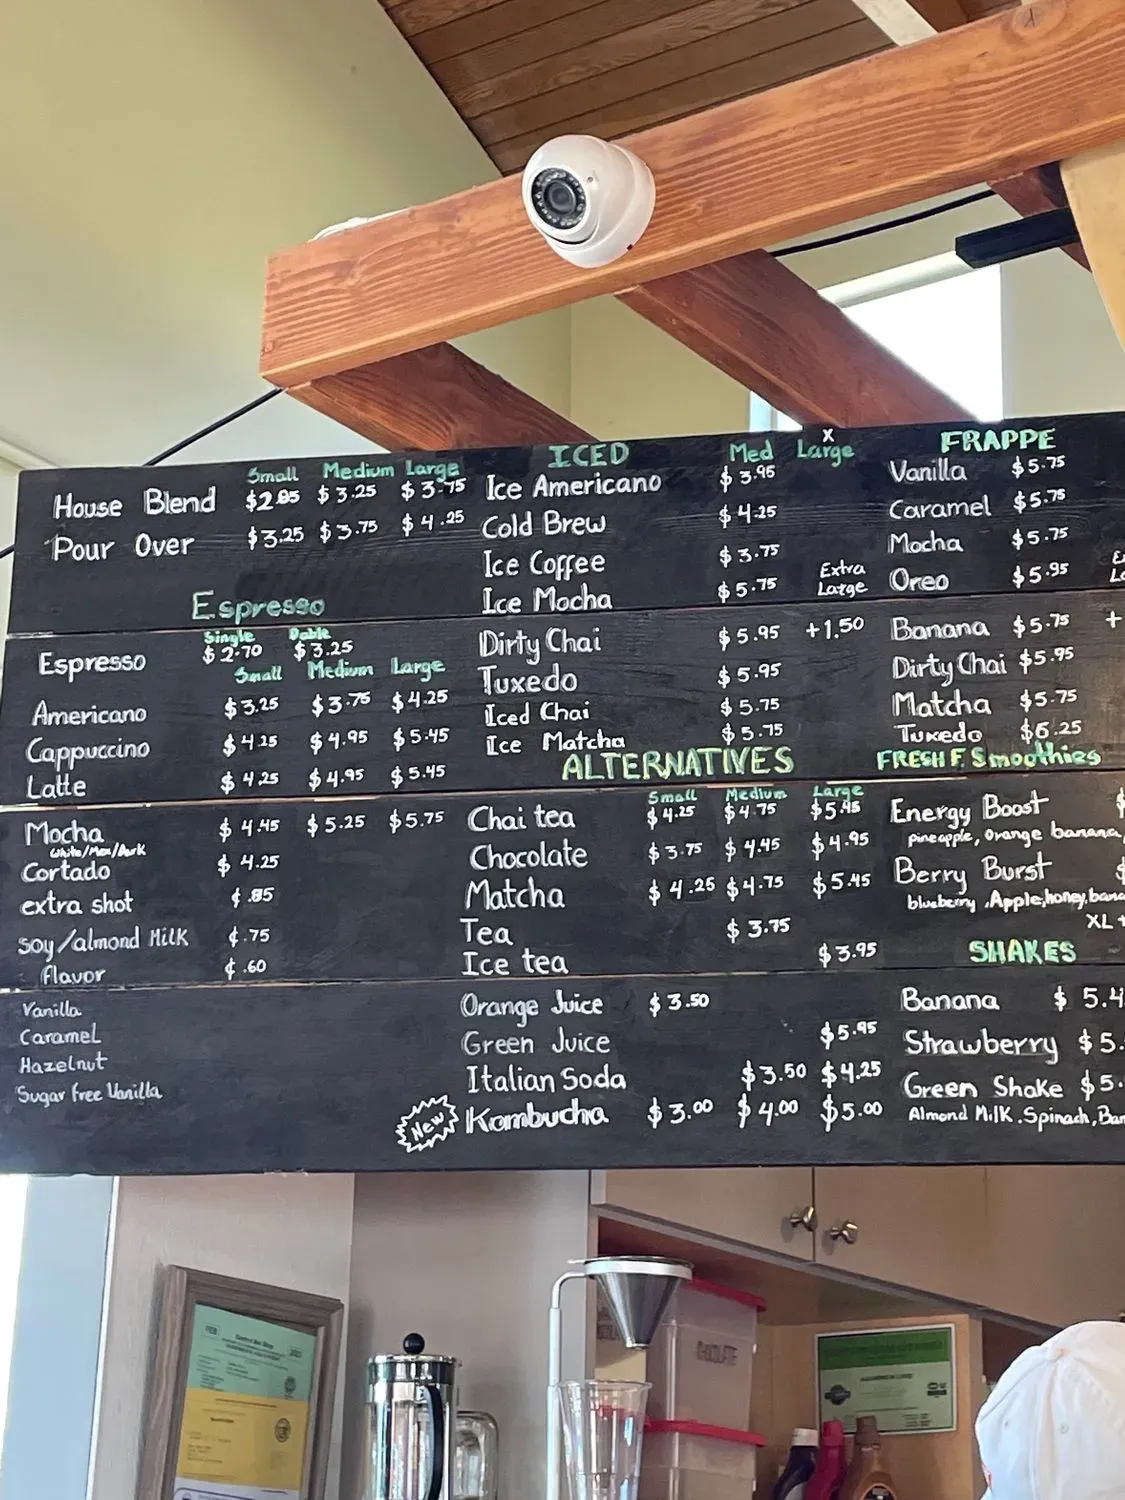 Small Medium Large
House Blend $2.85 $3.25 $3.75
Pour Over $3.25 $3.75 $4.25
Espresso
Single Doble
Espresso $2.70 $3.25
Small Medium Large
Americano $3.25 $3.75 $4.25
Cappuccino $4.25 $4.95 $5.45
Latte $4.25 $4.95 $5.45
Mocha $4.45 $5.25 $5.75
White/Mex/Dark
Cortado $4.25
extra shot ¢.85
Soy/almond Milk ¢.75
flavor ¢.60
Vanilla
Caramel
Hazelnut
Sugar Free Vanilla
ICED Med X Large
Ice Americano $3.95
Cold Brew $4.25
Ice Coffee $3.75
Ice Mocha $5.75 Extra Large
Dirty Chai $5.95 +1.50
Tuxedo $5.95
Iced Chai $5.75
Ice Matcha $5.75
ALTERNATIVES
Small Medium Large
Chai tea $4.25 $4.75 $5.45
Chocolate $3.75 $4.45 $4.95
Matcha $4.25 $4.75 $5.45
Tea $3.75
Ice tea $3.95
Orange Juice $3.50
Green Juice $5.95
Italian Soda $3.50 $4.25
New Kombucha $3.00 $4.00 $5.00
FRAPPE
Vanilla $5.75
Caramel $5.75
Mocha $5.75
Oreo $5.95
Banana $5.75 +
Dirty Chai $5.95
Matcha $5.75
Tuxedo $6.25
FRESH F. Smoothies
Energy Boost $
pineapple, orange banana,
Berry Burst $
blueberry, Apple, honey, bana
XL +
SHAKES
Banana $5.4
Strawberry $5.
Green Shake $5.
Almond Milk. Spinach, Ban
CHOCOLATE